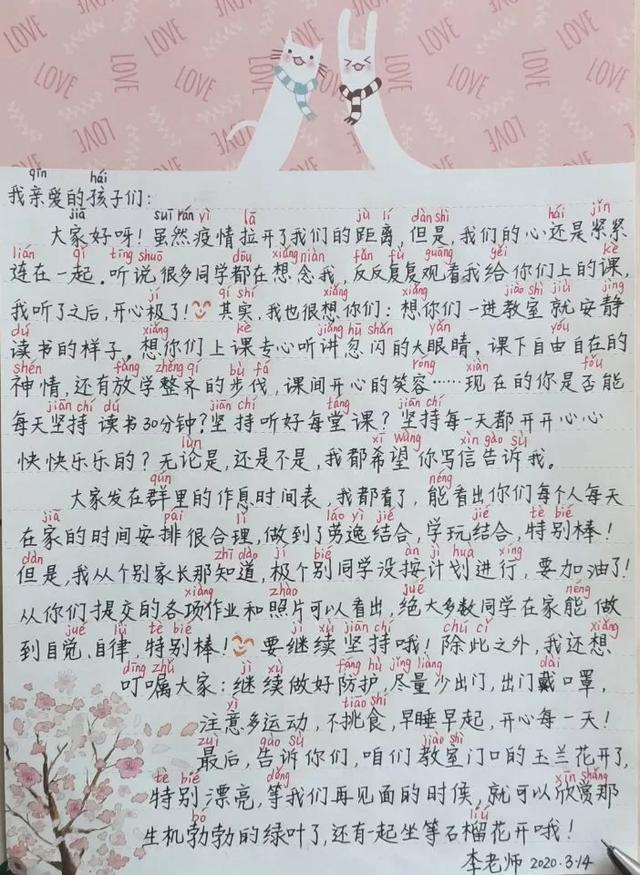 LOVE LOVE LOVE LOVE LOVE LOVE LOVE LOVE
qīn hái
我亲爱的孩子们:
jiā suī rán yì lā jù lí dàn shì hái jǐn
大家好呀!虽然疫情拉开了我们的距离,但是,我们的心还是紧紧
lián qǐ tīng shuō dōu xiǎng niàn fǎn fù guāng gěi kè
连在一起。听说很多同学都在想念我,反反复复观看我给你们上的课,
jí qí shí xiǎng jiào shì jiù jìng
我听了之后,开心极了!其实,我也很想你们:想你们一进教室就安静
dú xiǎng kè jiǎng hū shǎn yǎn yóu
读书的样子,想你们上课专心听讲忽闪的大眼睛,课下自由自在的
shén fàng zhěng qí bù fá róng xiàn fǒu
神情,还有放学整齐的步伐,课间开心的笑容……现在的你是否能
jiān chí dú jiān chí táng jiān chí
每天坚持读书30分钟?坚持听好每堂课?坚持每一天都开开心心
lùn xī wàng xìn gào sù
快快乐乐的?无论是,还是不是,我都希望你写信告诉我。
qún néng
大家发在群里的作息时间表,我都看了,能看出你们每个人每天
jiā pái lǐ láo yì jié jié tè bié
在家的时间安排很合理,做到了劳逸结合,学玩结合,特别棒!
dàn zhī dào jí bié àn jì huà xíng
但是,我从个别家长那知道,极个别同学没按计划进行,要加油了!
xiàng zhào jué néng
从你们提交的各项作业和照片可以看出,绝大多数同学在家能做
jué lǜ tè bié jì xù jiān chí chú cǐ
到自觉、自律,特别棒!要继续坚持哦!除此之外,我还想
dīng zhǔ jì xù fáng hù jǐng liàng dài
叮嘱大家:继续做好防护,尽量少出门,出门戴口罩,
tiāo shí
注意多运动,不挑食,早睡早起,开心每一天!
zuì gào sù jiào shì
最后,告诉你们,咱们教室门口的玉兰花开了,
tè bié děng xīn shǎng
特别漂亮,等我们再见面的时候,就可以欣赏那
bó liú
生机勃勃的绿叶了,还有一起坐等石榴花开哦!
李老师 2020.3.14